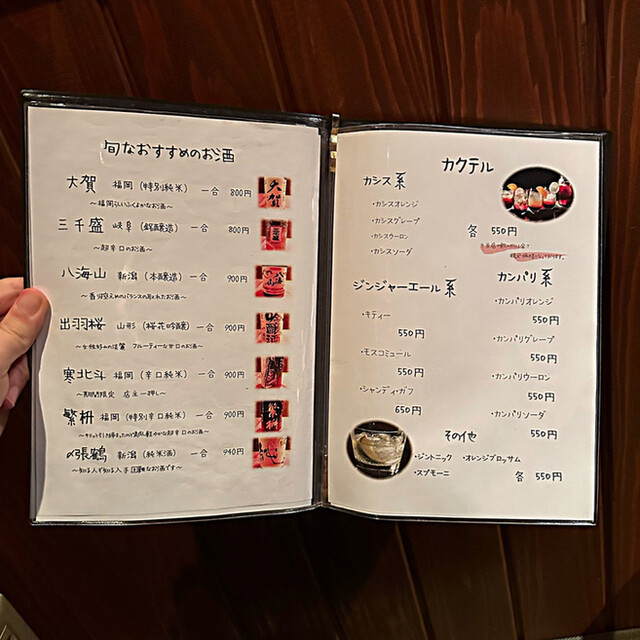 旬なおすすめのお酒
大賀 福岡 (特別純米) 一合 800円
～福岡らしいふくよかなお酒～
三千盛 岐阜 (醸造) 一合 800円
～超辛口のお酒～
八海山 新潟 (本醸造) 一合 900円
～香り控えめのバランスの取れたお酒～
出羽桜 山形 (桜花吟醸) 一合 900円
～女性好みの淡麗 フルーティーな甘口のお酒～
寒北斗 福岡 (辛口純米) 一合 900円
～期間限定 店主一押し～
繁桝 福岡 (特別辛口純米) 一合 900円
なお酒～
〆張鶴 新潟 (純米酒) 一合 940円
～知る人ぞ知る入手困難なお酒です～
カクテル
カシス系
・カシスオレンジ
・カシスグレープ
・カシスウーロン
・カシスソーダ
各 550円
ジンジャーエール系
・キティー
550円
・モスコミュール
550円
・シャンディ・ガフ
650円
カンパリ系
・カンパリオレンジ
550円
・カンパリグレープ
550円
・カンパリウーロン
550円
・カンパリソーダ
550円
その他
・ジントニック ・オレンジブロッサム
・スプモーニ 各 550円